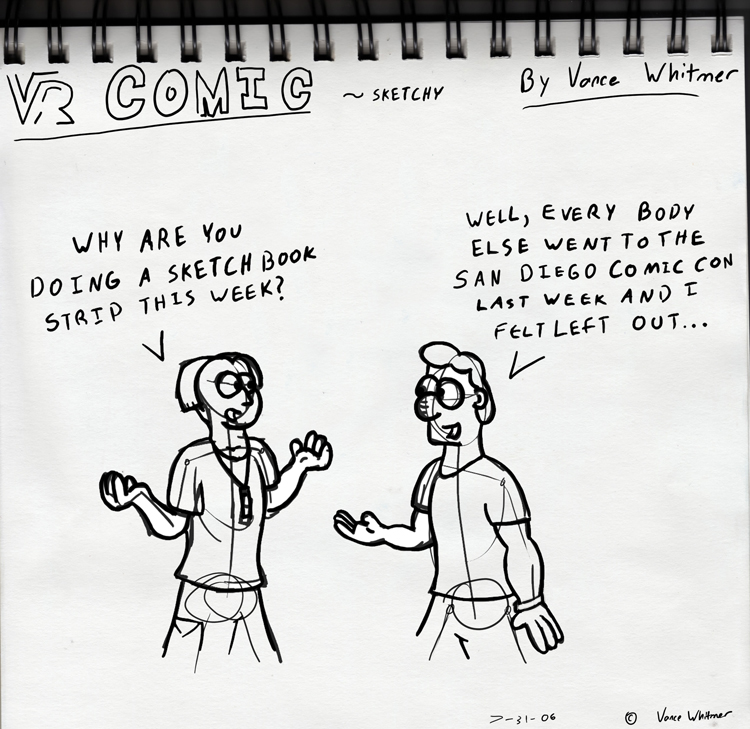 VR COMIC ~ SKETCHY By Vance Whitmer
WHY ARE YOU
DOING A SKETCH BOOK
STRIP THIS WEEK?
WELL, EVERY BODY
ELSE WENT TO THE
SAN DIEGO COMIC CON
LAST WEEK AND I
FELT LEFT OUT...
7-31-06 © Vance Whitmer